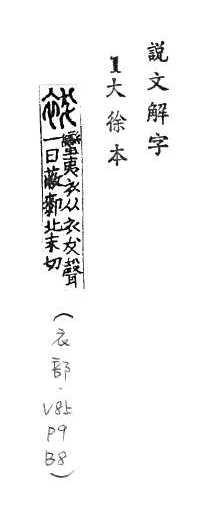 説文解字
1大徐本
袚
蠻夷衣从衣犮聲
一曰蔽厀北末切
(衣部·V8上 P9 B8)